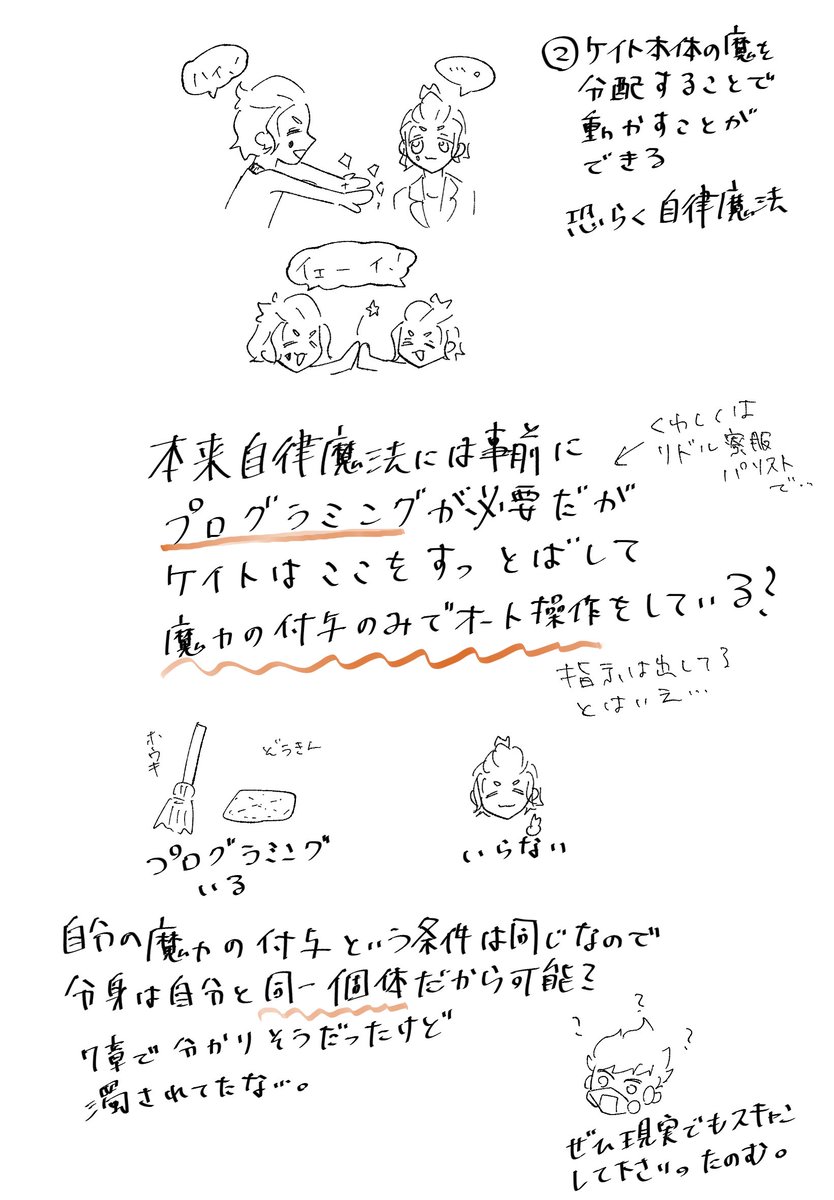 ハイ!
…。
②ケイト本体の魔を
分配することで
動かすことが
できる
恐らく自律魔法
イェーイ!
本来自律魔法には事前に
プログラミングが必要だが
ケイトはここをすっとばして
魔力の付与のみでオート操作をしている?
くわしくは
リドル寮服
パソスト
で…
指示は出してる
とはいえ…
ホウキ
ぞうきん
プログラミング
いる
いらない
自分の魔力の付与という条件は同じなので
分身は自分と同一個体だから可能?
7章で分かりそうだったけど
濁されてたな…。
? ? ?
ぜひ現実でもスキャン
して下さい。たのむ。